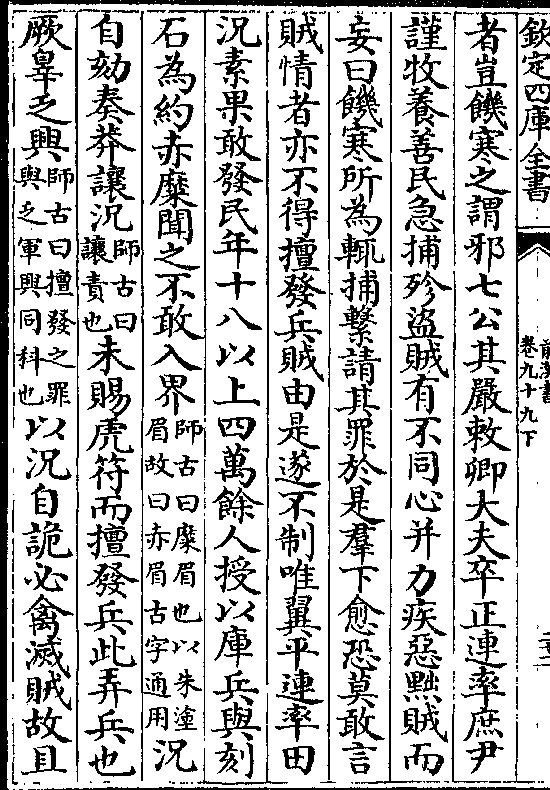 欽定四庫全書
前漢書
卷九十九下
者豈饑寒之謂邪七公其嚴敕卿大夫卒正連率庶尹
謹牧養善民急捕殄盜賊有不同心并力疾惡黜賊而
妄曰饑寒所為輒捕繫請其罪於是羣下愈恐莫敢言
賊情者亦不得擅發兵賊由是遂不制唯翼平連率田
況素果敢發民年十八以上四萬餘人授以庫兵與刻
石為約赤糜聞之不敢入界師古曰糜眉也以朱塗眉故曰赤眉古字通用況
自劾奏莽讓況師古曰讓責也未賜虎符而擅發兵此弄兵也
厥辠乏興師古曰擅發之罪與乏軍興同科也以況自詭必禽滅賊故且